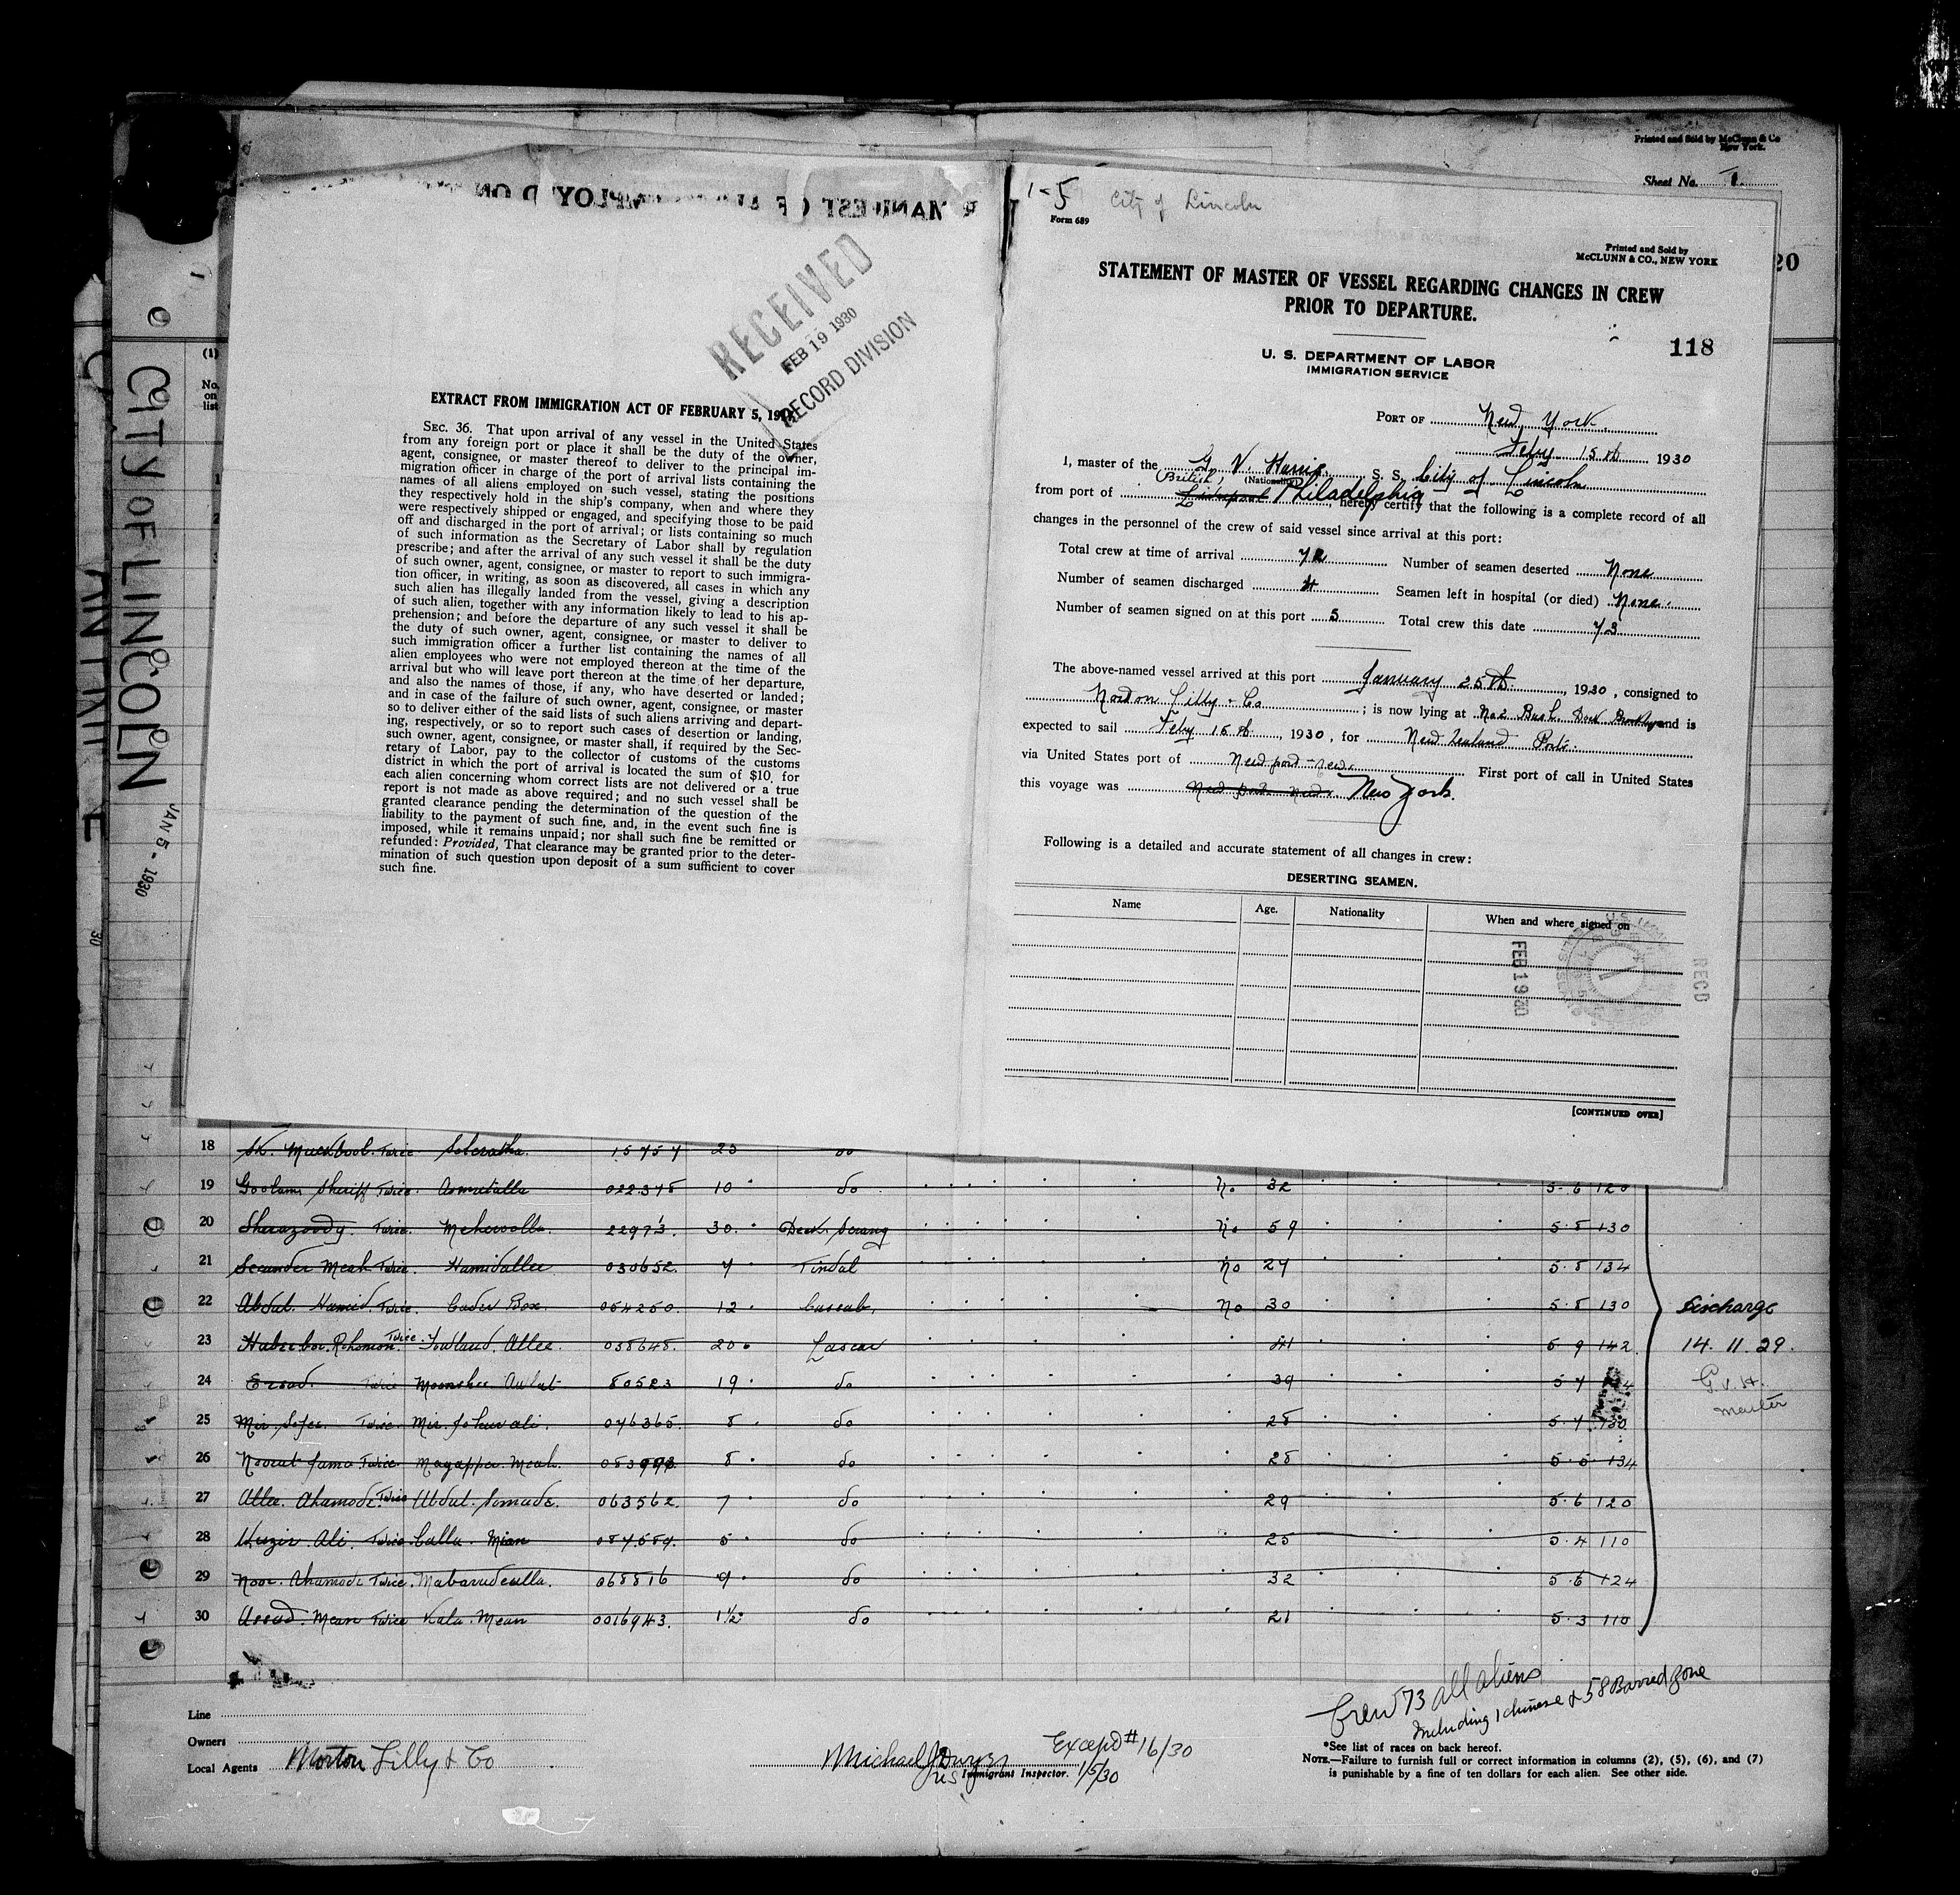 Printed and Sold by McClunn & Co
New York.
Sheet No. 1.
20
MANIFEST OF
RECEIVED
FEB 19 1930
RECORD DIVISION
EXTRACT FROM IMMIGRATION ACT OF FEBRUARY 5,
SEC. 36. That upon arrival of any vessel in the United States
from any foreign port or place it shall be the duty of the owner,
agent, consignee, or master thereof to deliver to the principal im-
migration officer in charge of the port of arrival lists containing the
names of all aliens employed on such vessel, stating the positions
they respectively hold in the ship's company, when and where they
were respectively shipped or engaged, and specifying those to be paid
off and discharged in the port of arrival; or lists containing so much
of such information as the Secretary of Labor shall by regulation
prescribe; and after the arrival of any such vessel it shall be the duty
of such owner, agent, consignee, or master to report to such immigra-
tion officer, in writing, as soon as discovered, all cases in which any
such alien has illegally landed from the vessel, giving a description
of such alien, together with any information likely to lead to his ap-
prehension; and before the departure of any such vessel it shall be
the duty of such owner, agent, consignee, or master to deliver to
such immigration officer a further list containing the names of all
alien employees who were not employed thereon at the time of the
arrival but who will leave port thereon at the time of her departure,
and also the names of those, if any, who have deserted or landed;
and in case of the failure of such owner, agent, consignee, or master
so to deliver either of the said lists of such aliens arriving and depart-
ing, respectively, or so to report such cases of desertion or landing,
such owner, agent, consignee, or master shall, if required by the Sec-
retary of Labor, pay to the collector of customs of the customs
district in which the port of arrival is located the sum of $10 for
each alien concerning whom correct lists are not delivered or a true
report is not made as above required; and no such vessel shall be
granted clearance pending the determination of the question of the
liability to the payment of such fine, and, in the event such fine is
imposed, while it remains unpaid; nor shall such fine be remitted or
refunded: Provided, That clearance may be granted prior to the deter-
mination of such question upon deposit of a sum sufficient to cover
such fine.
1-5 City of Lincoln
Form 689
Printed and Sold by
McCLUNN & CO., NEW YORK
STATEMENT OF MASTER OF VESSEL REGARDING CHANGES IN CREW
PRIOR TO DEPARTURE.
118
U. S. DEPARTMENT OF LABOR
IMMIGRATION SERVICE
PORT OF New York.
Feby 15th 1930
I, master of the G. V. Harris S. S. City of Lincoln
British, (Nationality)
from port of Liverpool Philadelphia, hereby certify that the following is a complete record of all
changes in the personnel of the crew of said vessel since arrival at this port:
Total crew at time of arrival 72 Number of seamen deserted None
Number of seamen discharged 4 Seamen left in hospital (or died) None.
Number of seamen signed on at this port 5 Total crew this date 73
The above-named vessel arrived at this port January 25th, 1930, consigned to
Norton Lilly & Co; is now lying at No2 Bush Dock Brooklyn and is
expected to sail Feby 15th, 1930, for New Zealand Ports.
via United States port of Newport-news. First port of call in United States
this voyage was New York.
Following is a detailed and accurate statement of all changes in crew:
DESERTING SEAMEN.
Name Age. Nationality When and where signed on
FEB 19 RECD
[CONTINUED OVER]
(1)
No. on list
CITY OF LINCOLN
JAN 5 - 1930
30
18 Sk. Muckbool. Twice. 15757 23 do
19 Goolam Sheriff Twice. Asmutalla 022378 10 do No 32 5.6 120
20 Sherazoody. Twice. Meherolla. 22973. 30. Deck Serang No 59 5.8 130
21 Secunder Meah Twice. Hamidallee 030652. 7 Tindal No 27 5.8 134
22 Abdul Hamid. Twice. Cader Box. 054250. 12 Cassab, No 30 5.8 130
23 Habeebor. Rohomon. Twice. Allee. 038648. 20 Lascar 41 5 9 142
24 Ersad. Twice 80523 19 do 39 5 4
25 Mir. Twice. Mir. 046365. 8 do 28 5.4 130
26 Twice. Meah. 8 do 28 5.5 134
27 Allee. Ahamode. Twice Abdul. Somade. 063562. 7 do 29 5.6 120
28 Uzir. Ali. Twice. Calla. Mian 087589. 5 do 25 5.4 110
29 Noor. Ahamode Twice. 068816 9 do 32 5.6 124
30 Assad. Mean Twice Kala. Mean 0016943. 1½ do 21 5.3 110
Discharge
14. 11. 29.
G V. H.
Master
Crew 73 all aliens
Including 1 chinese & 58 Barred Zone
Line
Owners
Local Agents Norton Lilly & Co
Michael J Dwyer
US Immigrant Inspector. 1/5/30
Except #16/30
*See list of races on back hereof.
NOTE.—Failure to furnish full or correct information in columns (2), (5), (6), and (7)
is punishable by a fine of ten dollars for each alien. See other side.